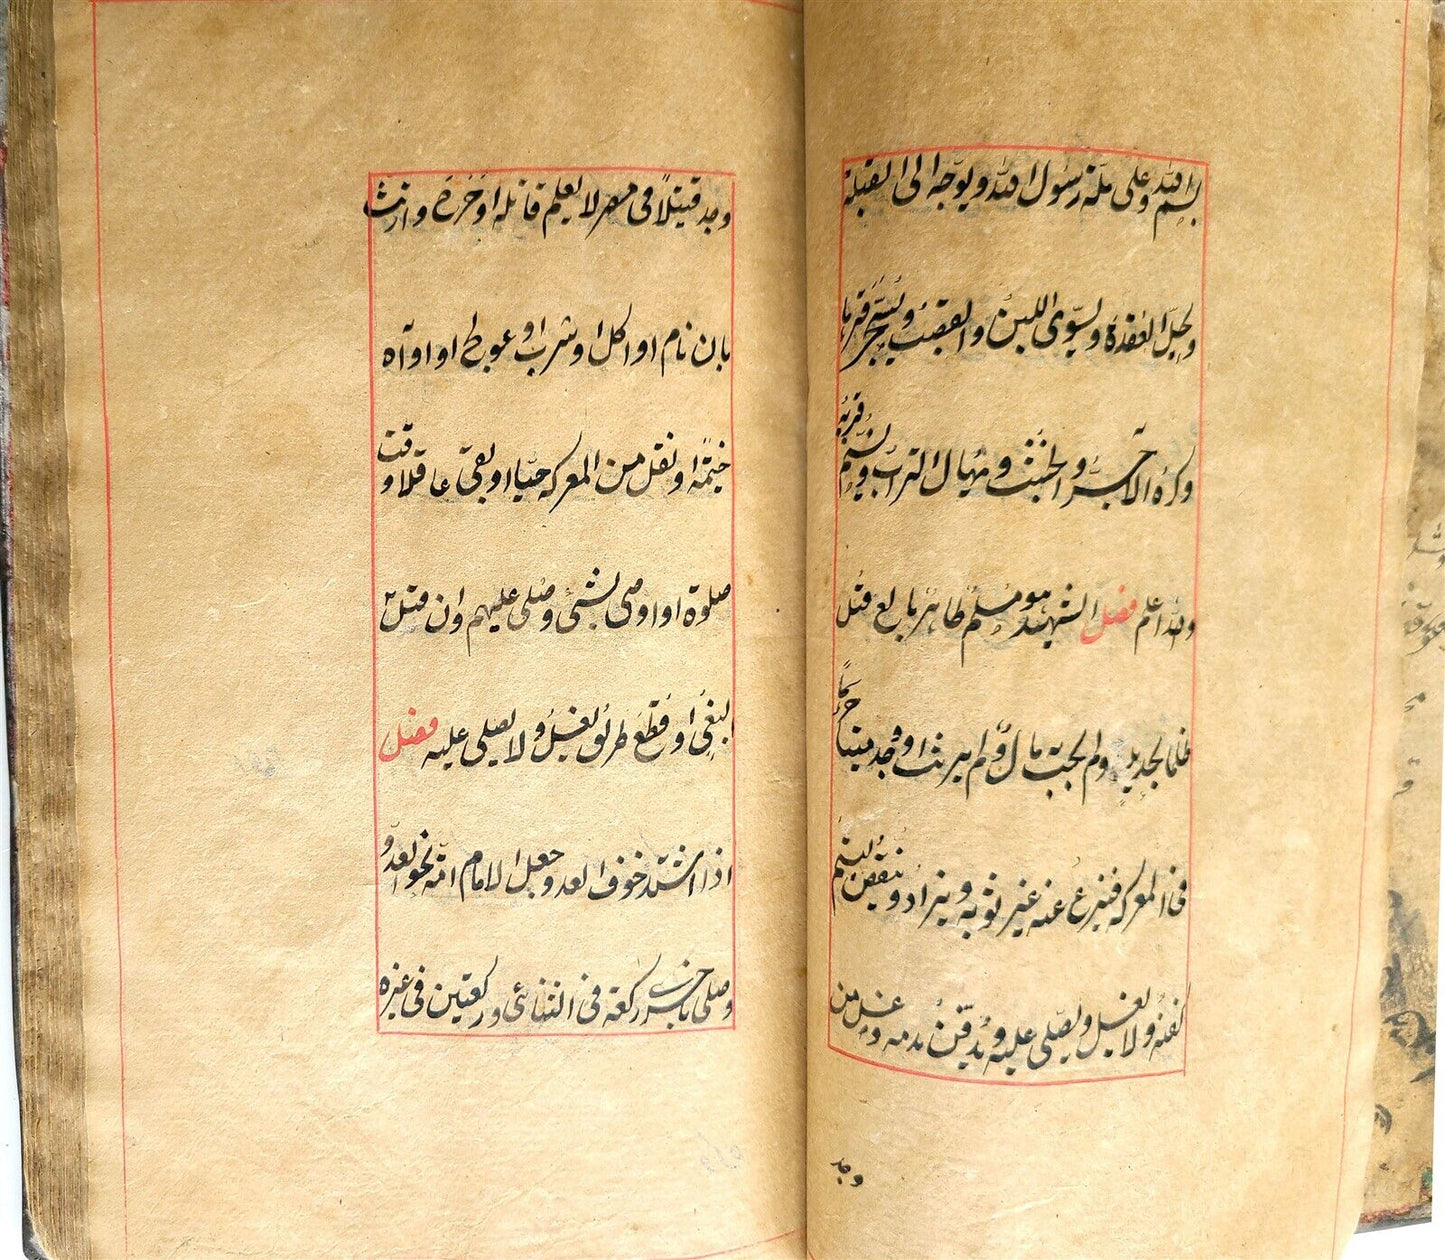 بسم الله وعلى ملة رسول الله ويوجه الى القبلة
ويحل العقدة ويسوى اللبن والقصب ويسجى قبرها
وكره الآجر والخشب ويهال التراب ويسنم قبره
والله اعلم فصل الشهيد هو مسلم طاهر بالغ قتل
ظلما بحديد ولم يجب مال ولم يرتث او وجد ميتا جريحا
فى المعركة فينزع عنه غير ثوبه ويزاد وينقص ليتم
كفنه ولا يغسل ويصلى عليه ويدفن بدمه وغسل من
وجد
وجد قتيلا فى مصر لا يعلم قاتله او جرح وارتث
بان نام او اكل او شرب او عولج او اواه
خيمة او نقل من المعركة حيا او بقى عاقلا وقت
صلوة او اوصى بشئ وصلى عليهم وان قتل
لبغى او قطع طريق يغسل ولا يصلى عليه فصل
اذا اشتد خوف العدو جعل الامام امة نحو العدو
وصلى باخرى ركعة فى الثنائى وركعتين فى غيره